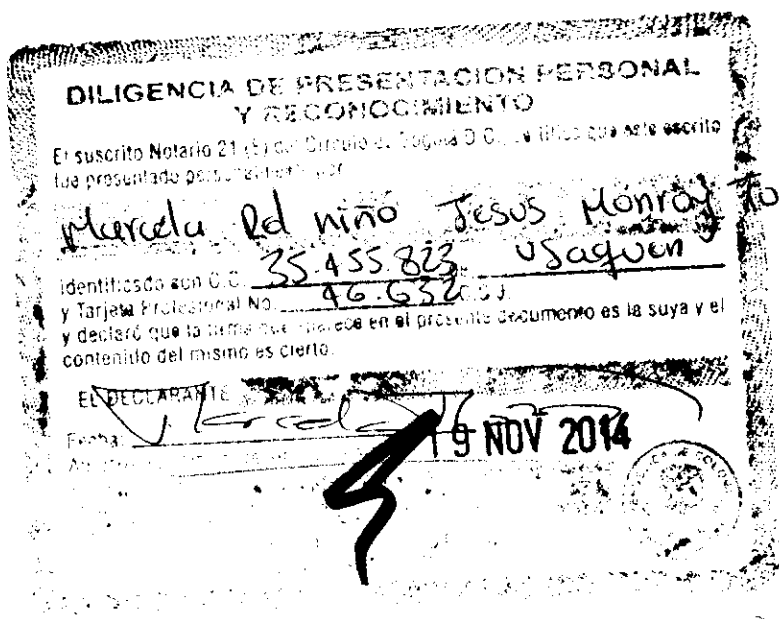 DILIGENCIA DE PRESENTACION PERSONAL
Y RECONOCIMIENTO
El suscrito Notario 21 (E) del Circulo de Bogotá D.C., que este escrito
fue presentado personalmente por
Marcela Rd niño Jesus Monroy
identificado con C.C. 35.455.823 Usaquen
y Tarjeta Profesional No. 46.632
y declaró que la firma que aparece en el presente documento es la suya y el
contenido del mismo es cierto.
EL DECLARANTE
Marcela
Fecha: 19 NOV 2014